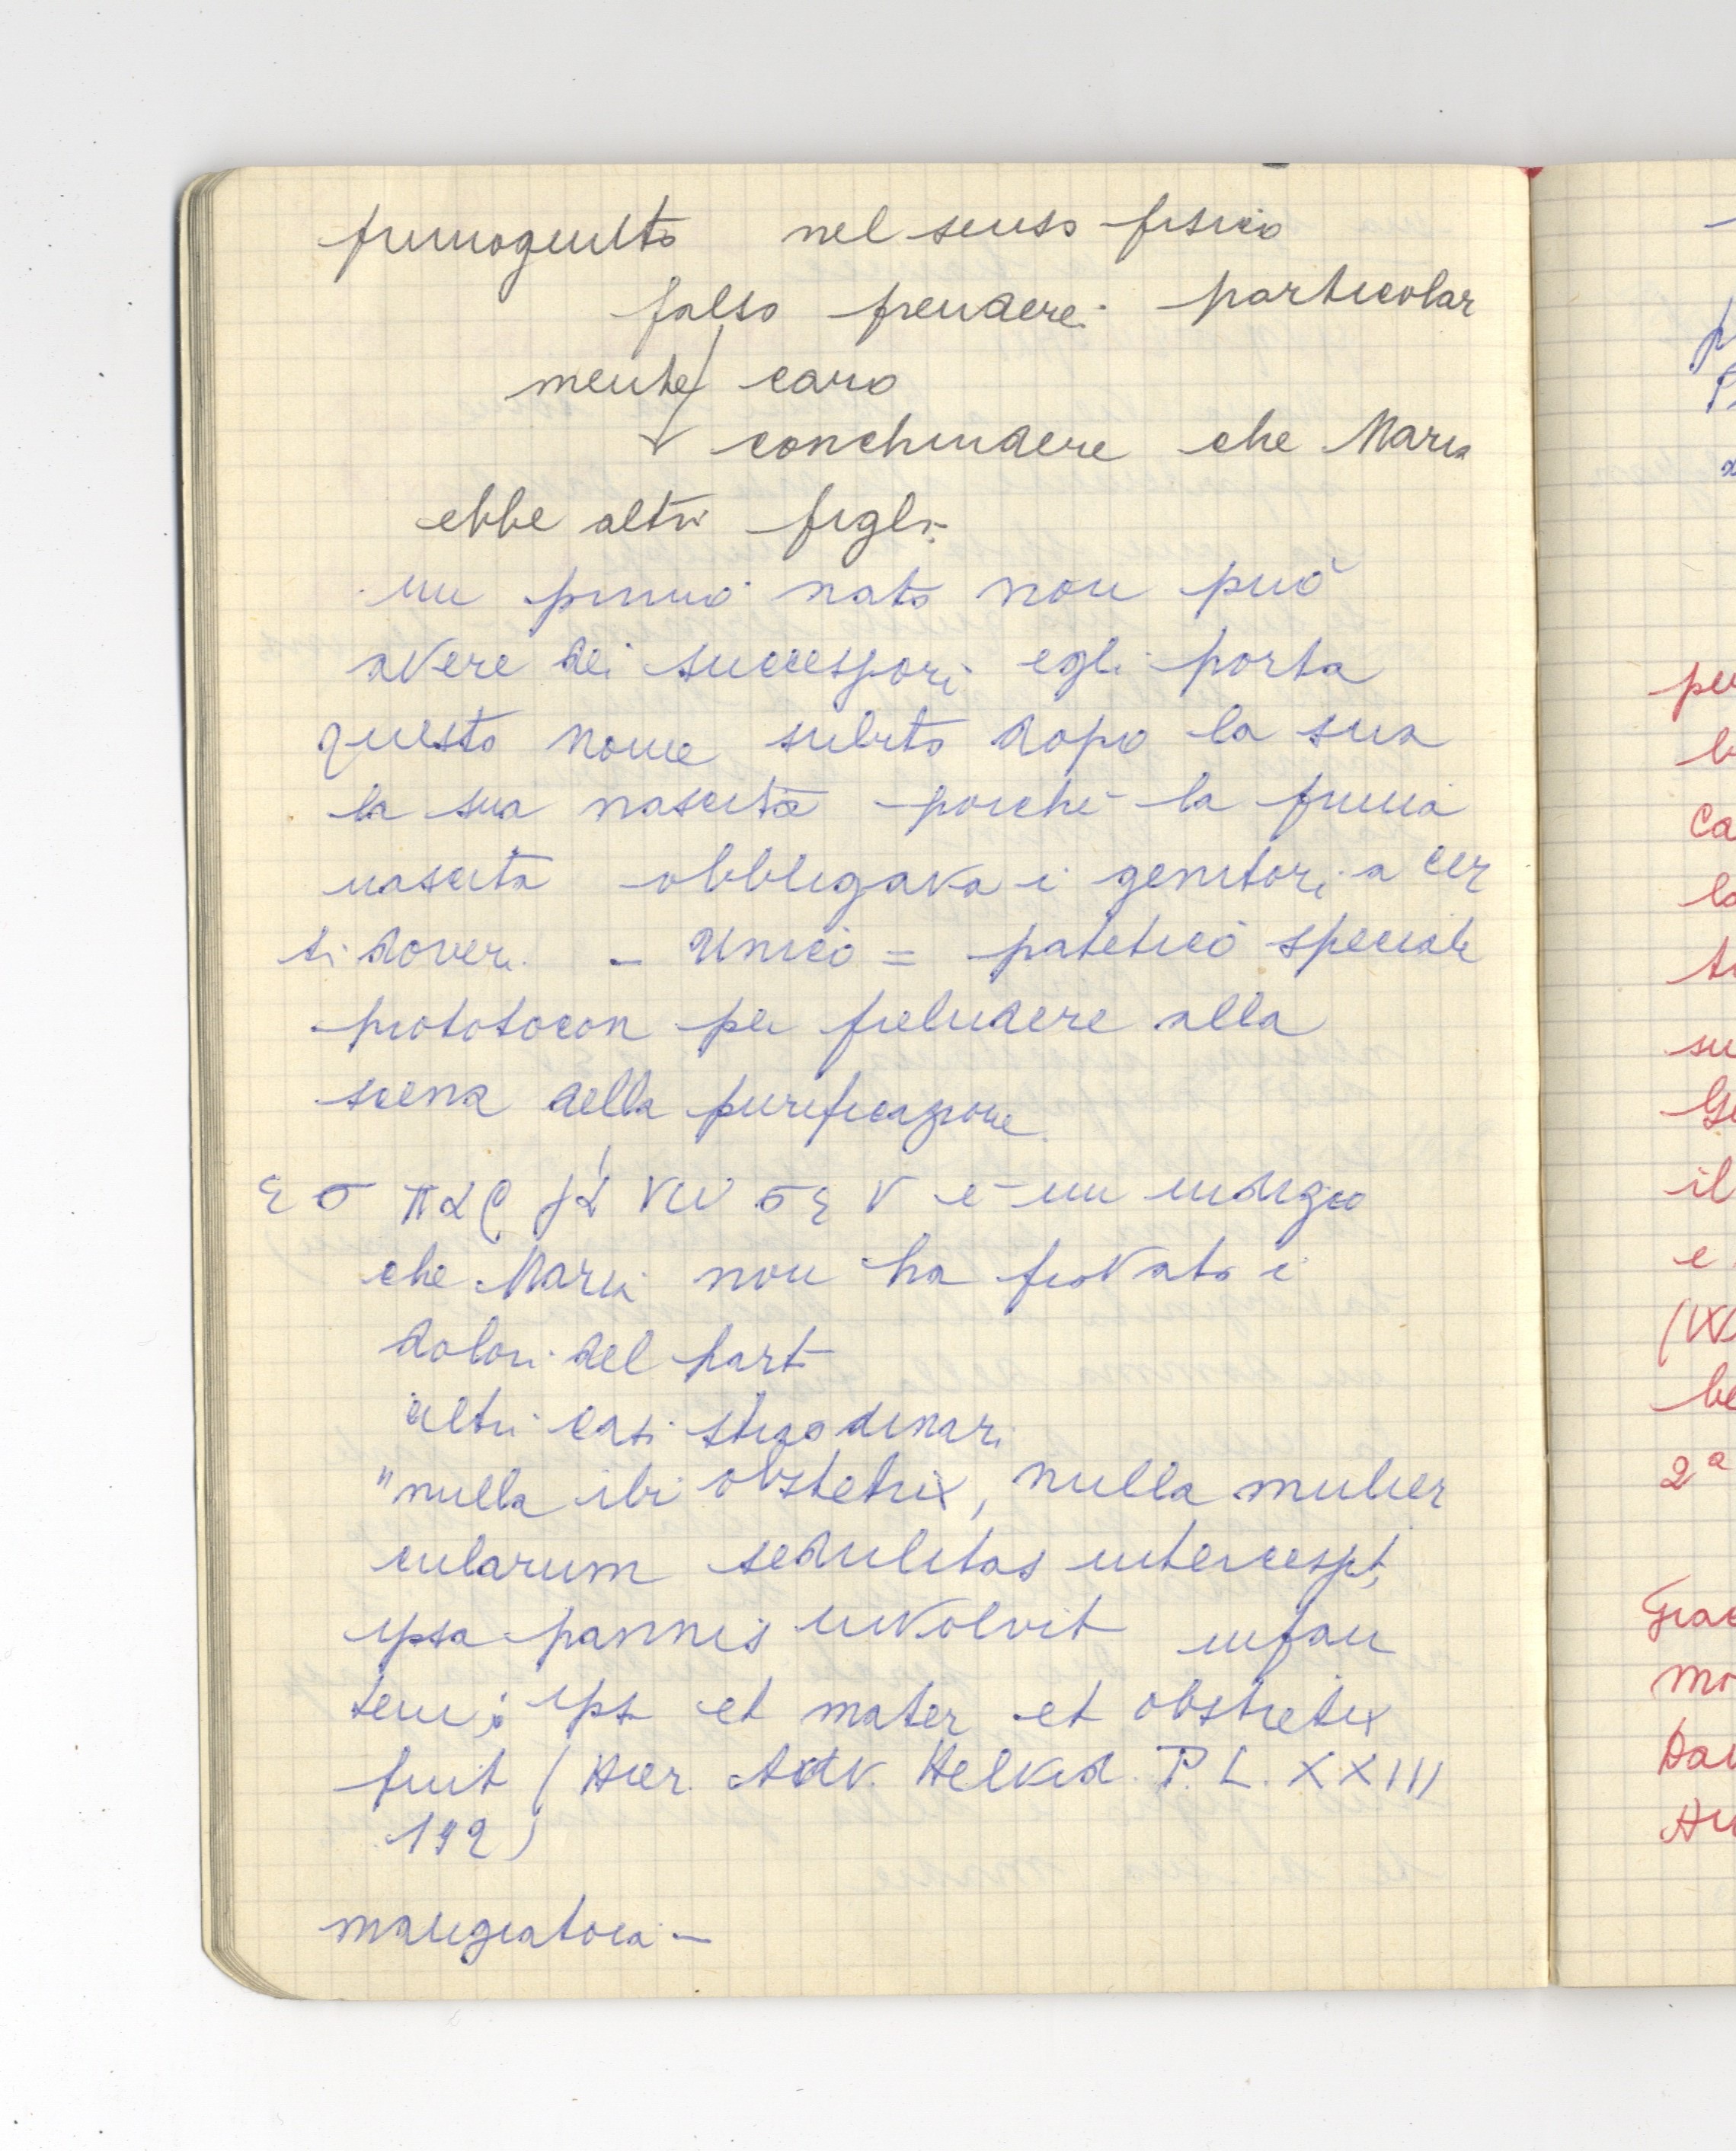 primogenito nel senso fisico
falso prendere: particolar
mente caro
conchiudere che Maria
ebbe altri figli.
un primo nato non può
avere dei successori egli porta
questo nome subito dopo la sua
la sua nascita poiché la prima
nascita obbligava i genitori a cer
ti doveri. - Unico = patetico speciale
prototocon per preludere alla
scena della purificazione
εσπαργάνωσεν è un indizio
che Maria non ha provato i
dolori del part
altri casi straodinari
"nulla ibi obstetrix, nulla mulier
cularum sedulitas intercessit,
ipsa pannis involvit infan
tem; ips et mater et obstetrix
fuit (Hier. Adv. Helvid. P. L. XXIII
192)
mangiatoia -
per
2ª